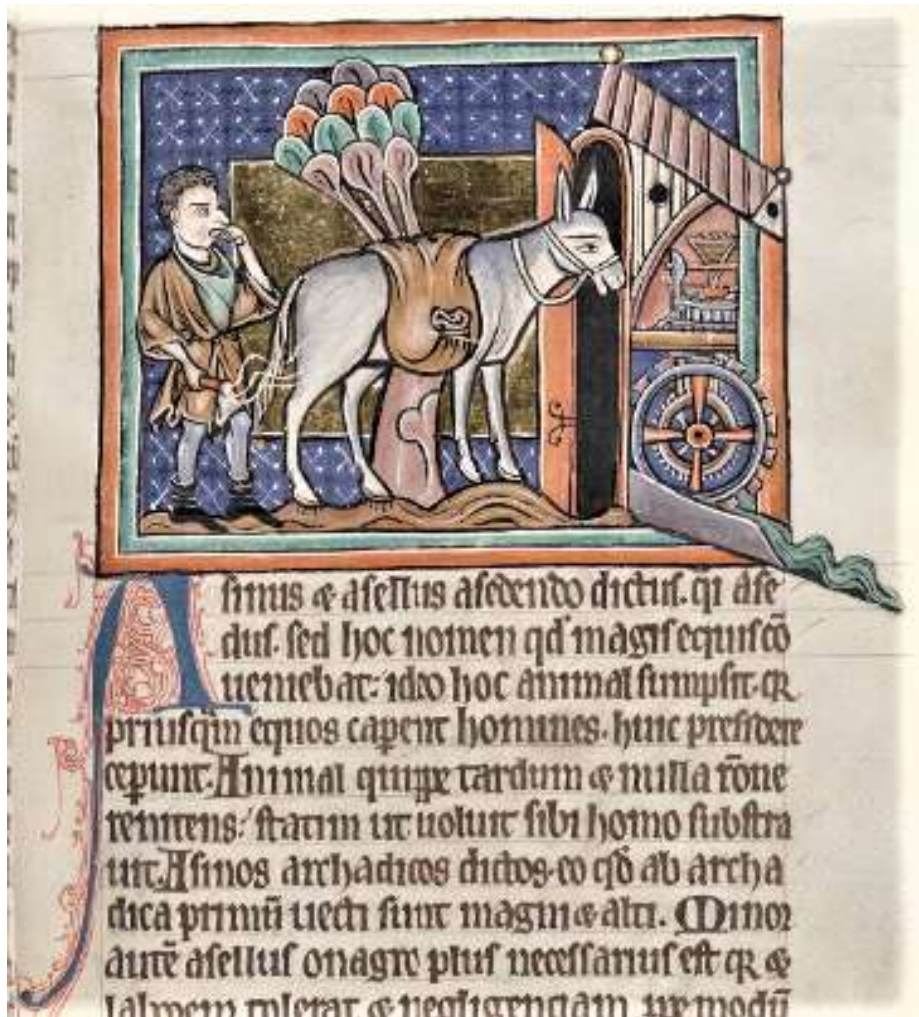 Asinus & asellus a sedendo dictus. q̄i ase
dus. sed hoc nomen qd' magis equis cō
ueniebat: ideo hoc animal sumpsit. qꝛ
priusq̄m equos caperent homines. huic presidere
ceperunt. Animal quippe tardum & nulla rōne
renitens: statim ut uoluit sibi homo substra
uit. Asinos archadicos dictos. eo qd̄ ab archa
dica primū uecti sunt magni & alti. Minor
autē asellus onagro plus necessarius est qꝛ &
laborem tolerat & negligentiam ꝓpe modū